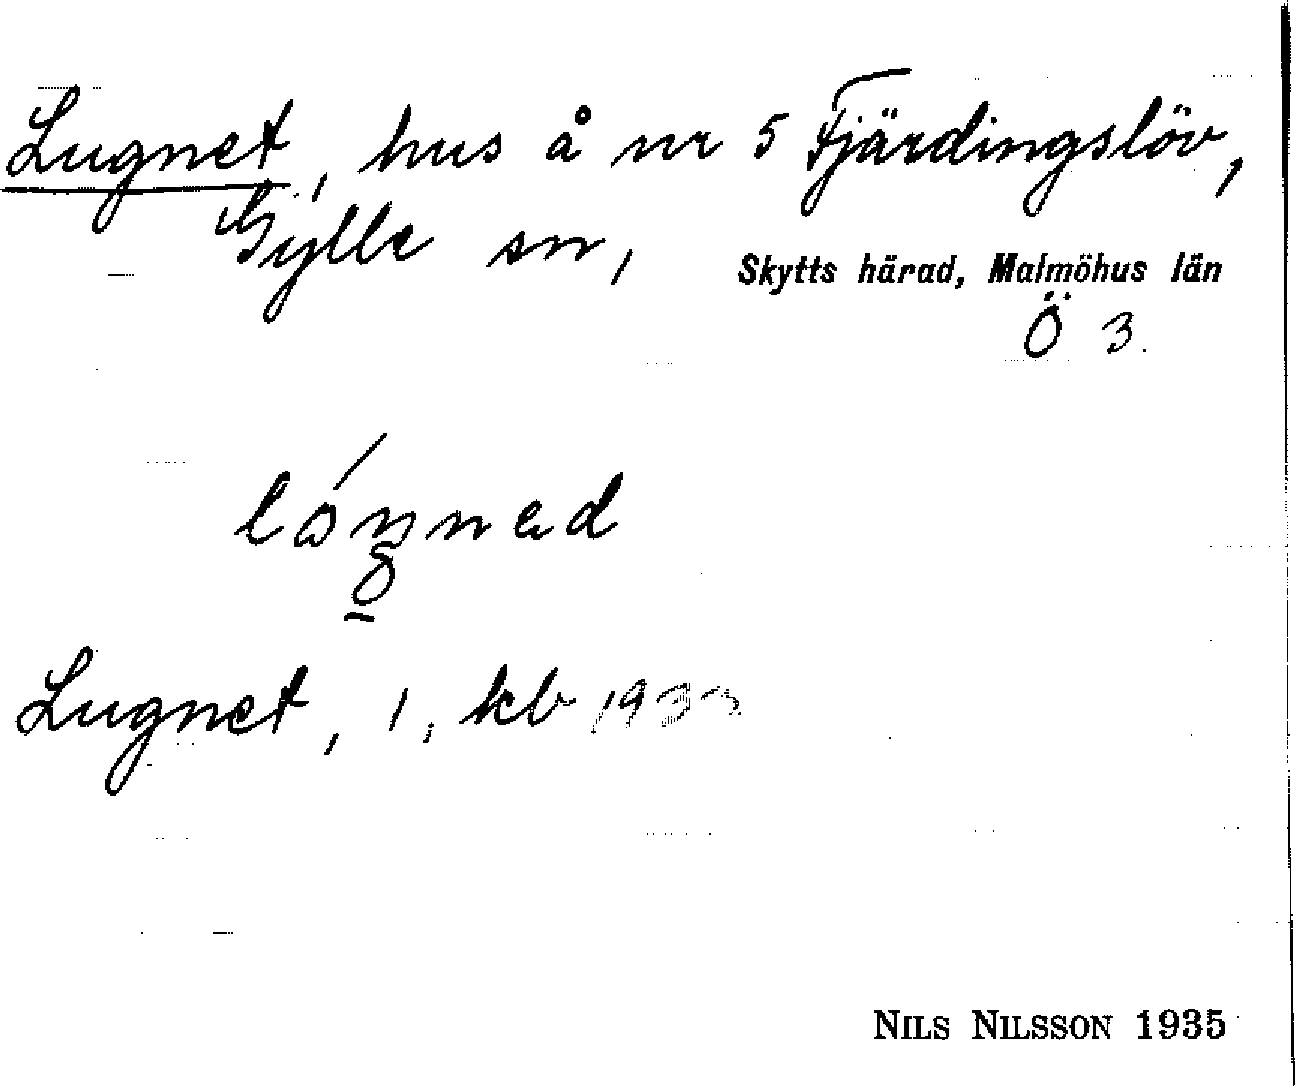 Lugnet, hus å nr 5 Fjärdingslöv,
Gylle sn,
Skytts härad, Malmöhus län
Ö 3.
Lugnet, 1, kb
NILS NILSSON 1935